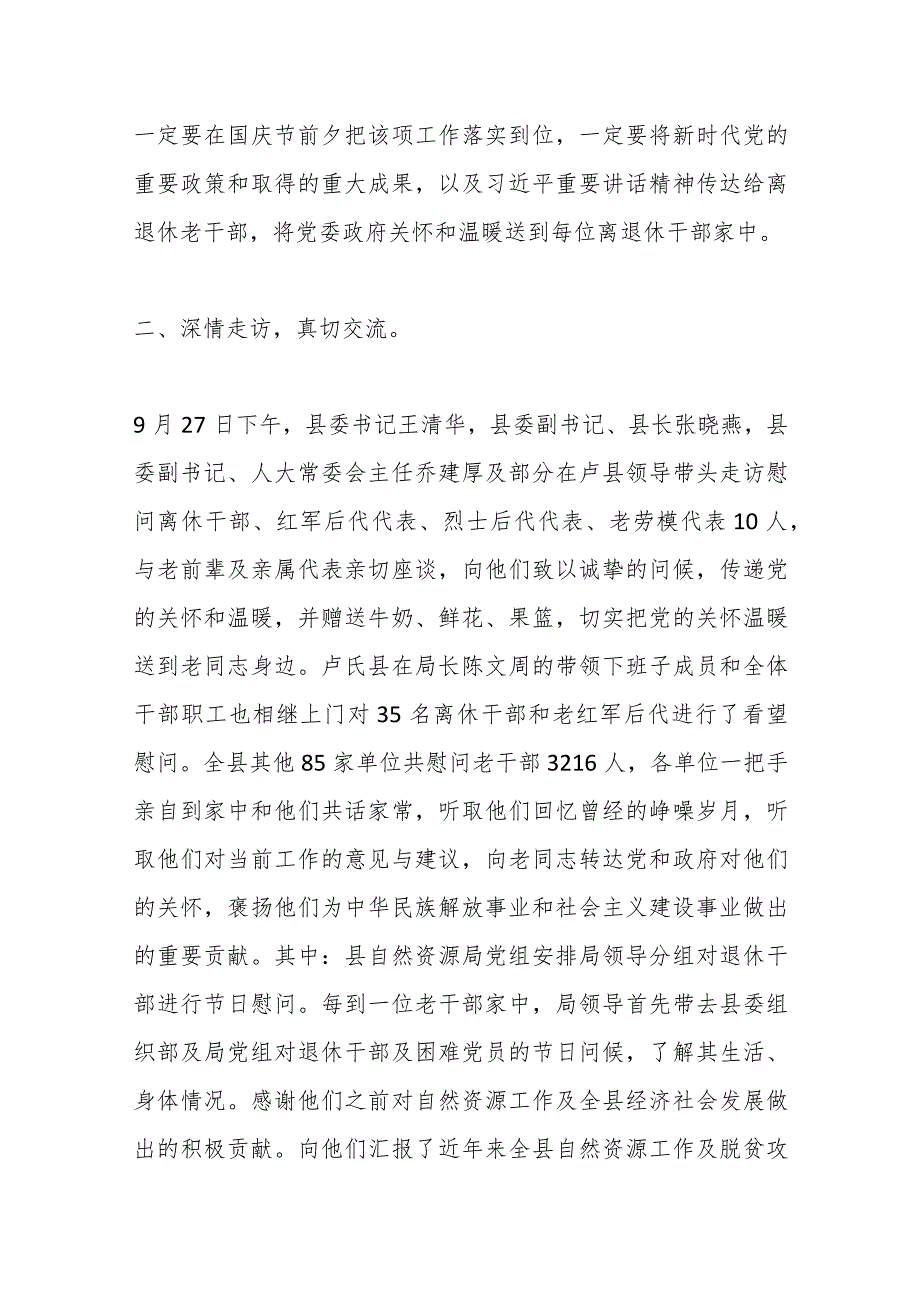 一定要在国庆节前夕把该项工作落实到位，一定要将新时代党的
重要政策和取得的重大成果，以及习近平重要讲话精神传达给离
退休老干部，将党委政府关怀和温暖送到每位离退休干部家中。
二、深情走访，真切交流。
9 月 27 日下午，县委书记王清华，县委副书记、县长张晓燕，县
委副书记、人大常委会主任乔建厚及部分在卢县领导带头走访慰
问离休干部、红军后代代表、烈士后代代表、老劳模代表 10 人，
与老前辈及亲属代表亲切座谈，向他们致以诚挚的问候，传递党
的关怀和温暖，并赠送牛奶、鲜花、果篮，切实把党的关怀温暖
送到老同志身边。卢氏县在局长陈文周的带领下班子成员和全体
干部职工也相继上门对 35 名离休干部和老红军后代进行了看望
慰问。全县其他 85 家单位共慰问老干部 3216 人，各单位一把手
亲自到家中和他们共话家常，听取他们回忆曾经的峥噪岁月，听
取他们对当前工作的意见与建议，向老同志转达党和政府对他们
的关怀，褒扬他们为中华民族解放事业和社会主义建设事业做出
的重要贡献。其中：县自然资源局党组安排局领导分组对退休干
部进行节日慰问。每到一位老干部家中，局领导首先带去县委组
织部及局党组对退休干部及困难党员的节日问候，了解其生活、
身体情况。感谢他们之前对自然资源工作及全县经济社会发展做
出的积极贡献。向他们汇报了近年来全县自然资源工作及脱贫攻